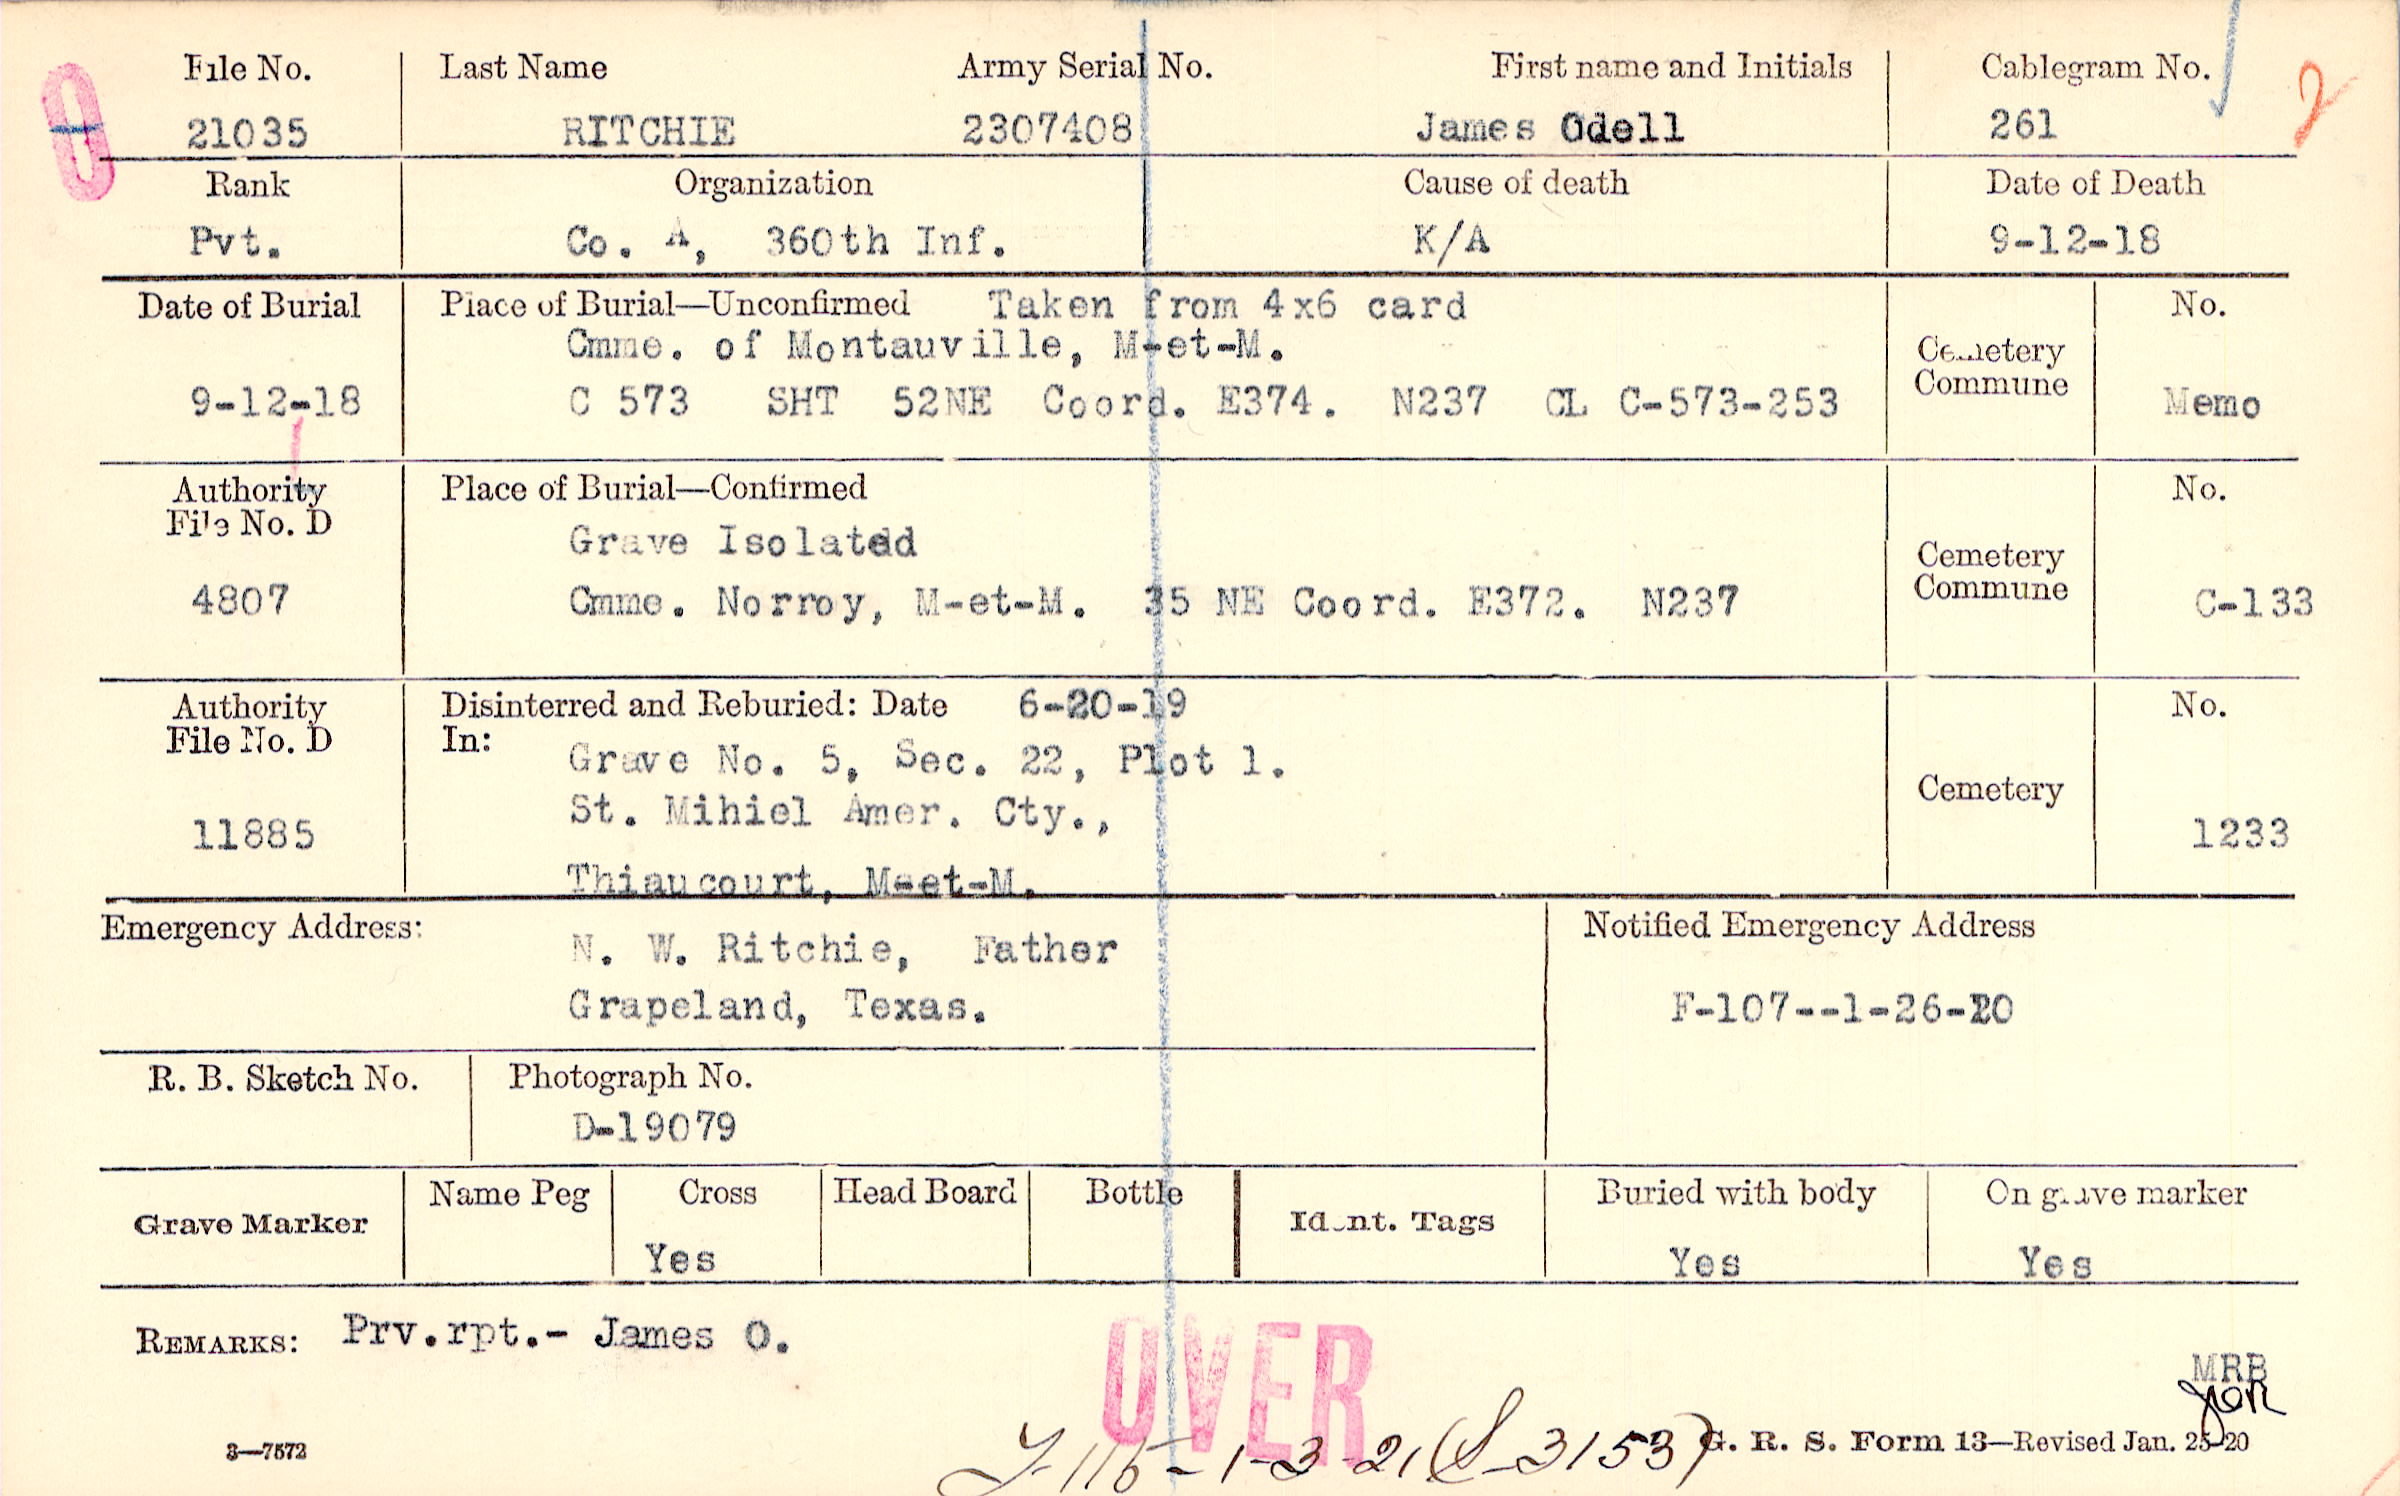 File No. Last Name Army Serial No. First name and Initials Cablegram No.
21035 RITCHIE 2307408 James Odell 261 2
Rank Organization Cause of death Date of Death
Pvt. Co. A, 360th Inf. K/A 9-12-18
Date of Burial Place of Burial—Unconfirmed Taken from 4x6 card No.
Cmme. of Montauville, M-et-M. Cemetery
Commune
9-12-18 C 573 SHT 52NE Coord. E374. N237 CL C-573-253 Memo
Authority Place of Burial—Confirmed No.
File No. D
Grave Isolated Cemetery
Commune
4807 Cmme. Norroy, M-et-M. 35 NE Coord. E372. N237 C-133
Authority Disinterred and Reburied: Date 6-20-19 No.
File No. D In:
Grave No. 5, Sec. 22, Plot 1. Cemetery
11885 St. Mihiel Amer. Cty., 1233
Thiaucourt, M-et-M.
Emergency Address: Notified Emergency Address
N. W. Ritchie, Father
Grapeland, Texas. F-107--1-26-20
R. B. Sketch No. Photograph No.
D-19079
Grave Marker Name Peg Cross Head Board Bottle Ident. Tags Buried with body On grave marker
Yes Yes Yes
REMARKS: Prv.rpt.- James O.
OVER
MRB
3—7572 G. R. S. Form 13—Revised Jan. 25-20
-115-1-3-21 (S-3153)